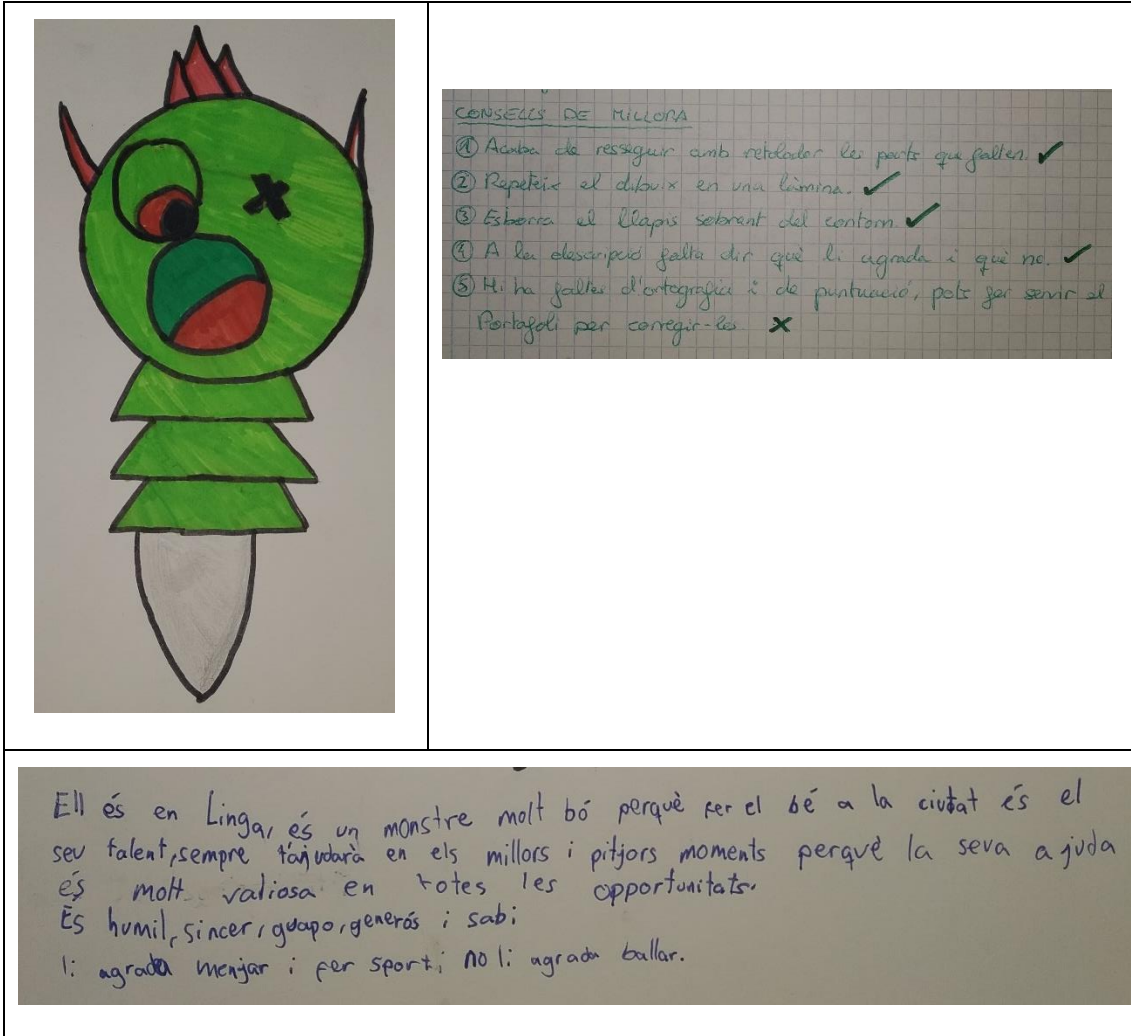 CONSELLS DE MILLORA
① Acaba de resseguir amb retolador les parts que falten. ✓
② Repeteix el dibuix en una làmina. ✓
③ Esborra el llapis sobrant del contorn. ✓
④ A la descripció falta dir què li agrada i què no. ✓
⑤ Hi ha faltes d'ortografia i de puntuació, pots fer servir el
Portafoli per corregir-les. ×
Ell és en Lingar, és un monstre molt bó perquè fer el bé a la ciutat és el
seu talent, sempre t'ajudarà en els millors i pitjors moments perquè la seva ajuda
és molt valiosa en totes les opportunitats.
És humil, sincer, guapo, generós i sabi
li agrada menjar i fer sport i no li agrada ballar.